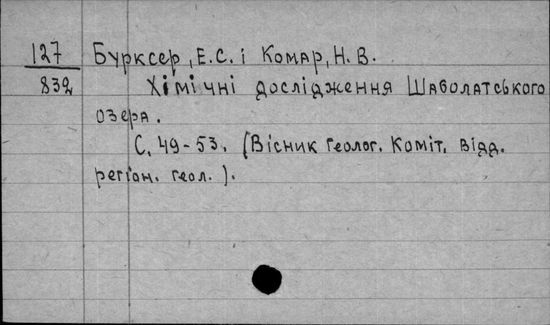 127 Бурксер, Е.С. і Комар, Н.В.
832 Хімічні дослідження Шаболатського
озера.
С. 49-53. (Вісник Геолог. Коміт. Відд.
регіон. геол.).